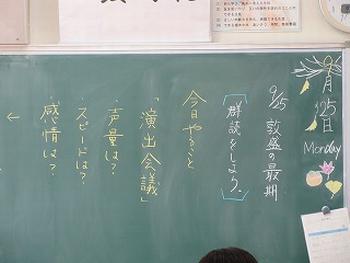 9月25日
Monday
9/25 敦盛の最期
[群読をしよう。]
今日やること
「演出会議」
・声量は?
・スピードは?
・感情は?
↓